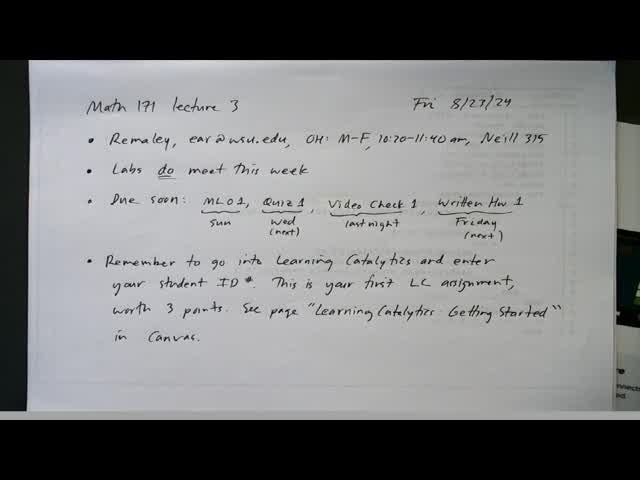 Math 171 lecture 3 Fri 8/23/24
• Remaley, ear@wsu.edu, OH: M-F, 10:20-11:40 am, Neill 315
• Labs do meet this week
• Due soon: MLO1, Quiz 1, Video Check 1, Written HW 1
sun wed (next) last night Friday (next)
• Remember to go into Learning Catalytics and enter
your student ID #. This is your first LC assignment,
worth 3 points. See page "Learning Catalytics: Getting Started"
in Canvas.